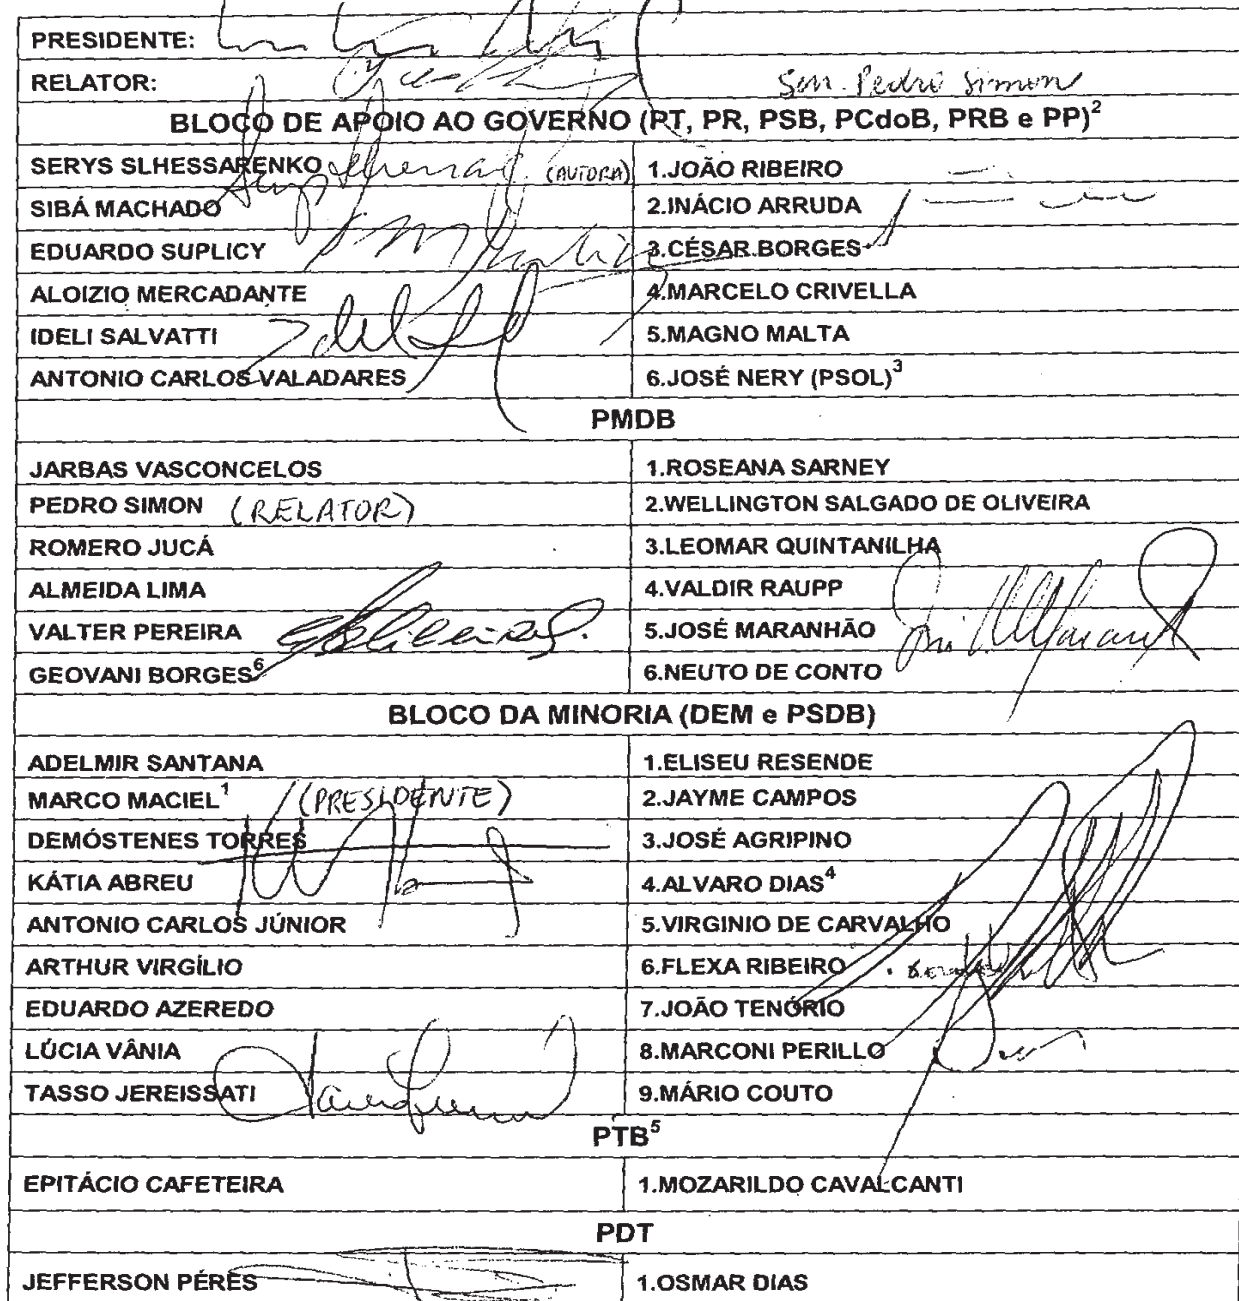 PRESIDENTE:
RELATOR: Sen. Pedro Simon
BLOCO DE APOIO AO GOVERNO (PT, PR, PSB, PCdoB, PRB e PP)²
SERYS SLHESSARENKO (AUTORA) 1.JOÃO RIBEIRO
SIBÁ MACHADO 2.INÁCIO ARRUDA
EDUARDO SUPLICY 3.CÉSAR BORGES
ALOIZIO MERCADANTE 4.MARCELO CRIVELLA
IDELI SALVATTI 5.MAGNO MALTA
ANTONIO CARLOS VALADARES 6.JOSÉ NERY (PSOL)³
PMDB
JARBAS VASCONCELOS 1.ROSEANA SARNEY
PEDRO SIMON (RELATOR) 2.WELLINGTON SALGADO DE OLIVEIRA
ROMERO JUCÁ 3.LEOMAR QUINTANILHA
ALMEIDA LIMA 4.VALDIR RAUPP
VALTER PEREIRA 5.JOSÉ MARANHÃO
GEOVANI BORGES⁶ 6.NEUTO DE CONTO
BLOCO DA MINORIA (DEM e PSDB)
ADELMIR SANTANA 1.ELISEU RESENDE
MARCO MACIEL¹ (PRESIDENTE) 2.JAYME CAMPOS
DEMÓSTENES TORRES 3.JOSÉ AGRIPINO
KÁTIA ABREU 4.ALVARO DIAS⁴
ANTONIO CARLOS JÚNIOR 5.VIRGINIO DE CARVALHO
ARTHUR VIRGÍLIO 6.FLEXA RIBEIRO
EDUARDO AZEREDO 7.JOÃO TENÓRIO
LÚCIA VÂNIA 8.MARCONI PERILLO
TASSO JEREISSATI 9.MÁRIO COUTO
PTB⁵
EPITÁCIO CAFETEIRA 1.MOZARILDO CAVALCANTI
PDT
JEFFERSON PÉRES 1.OSMAR DIAS